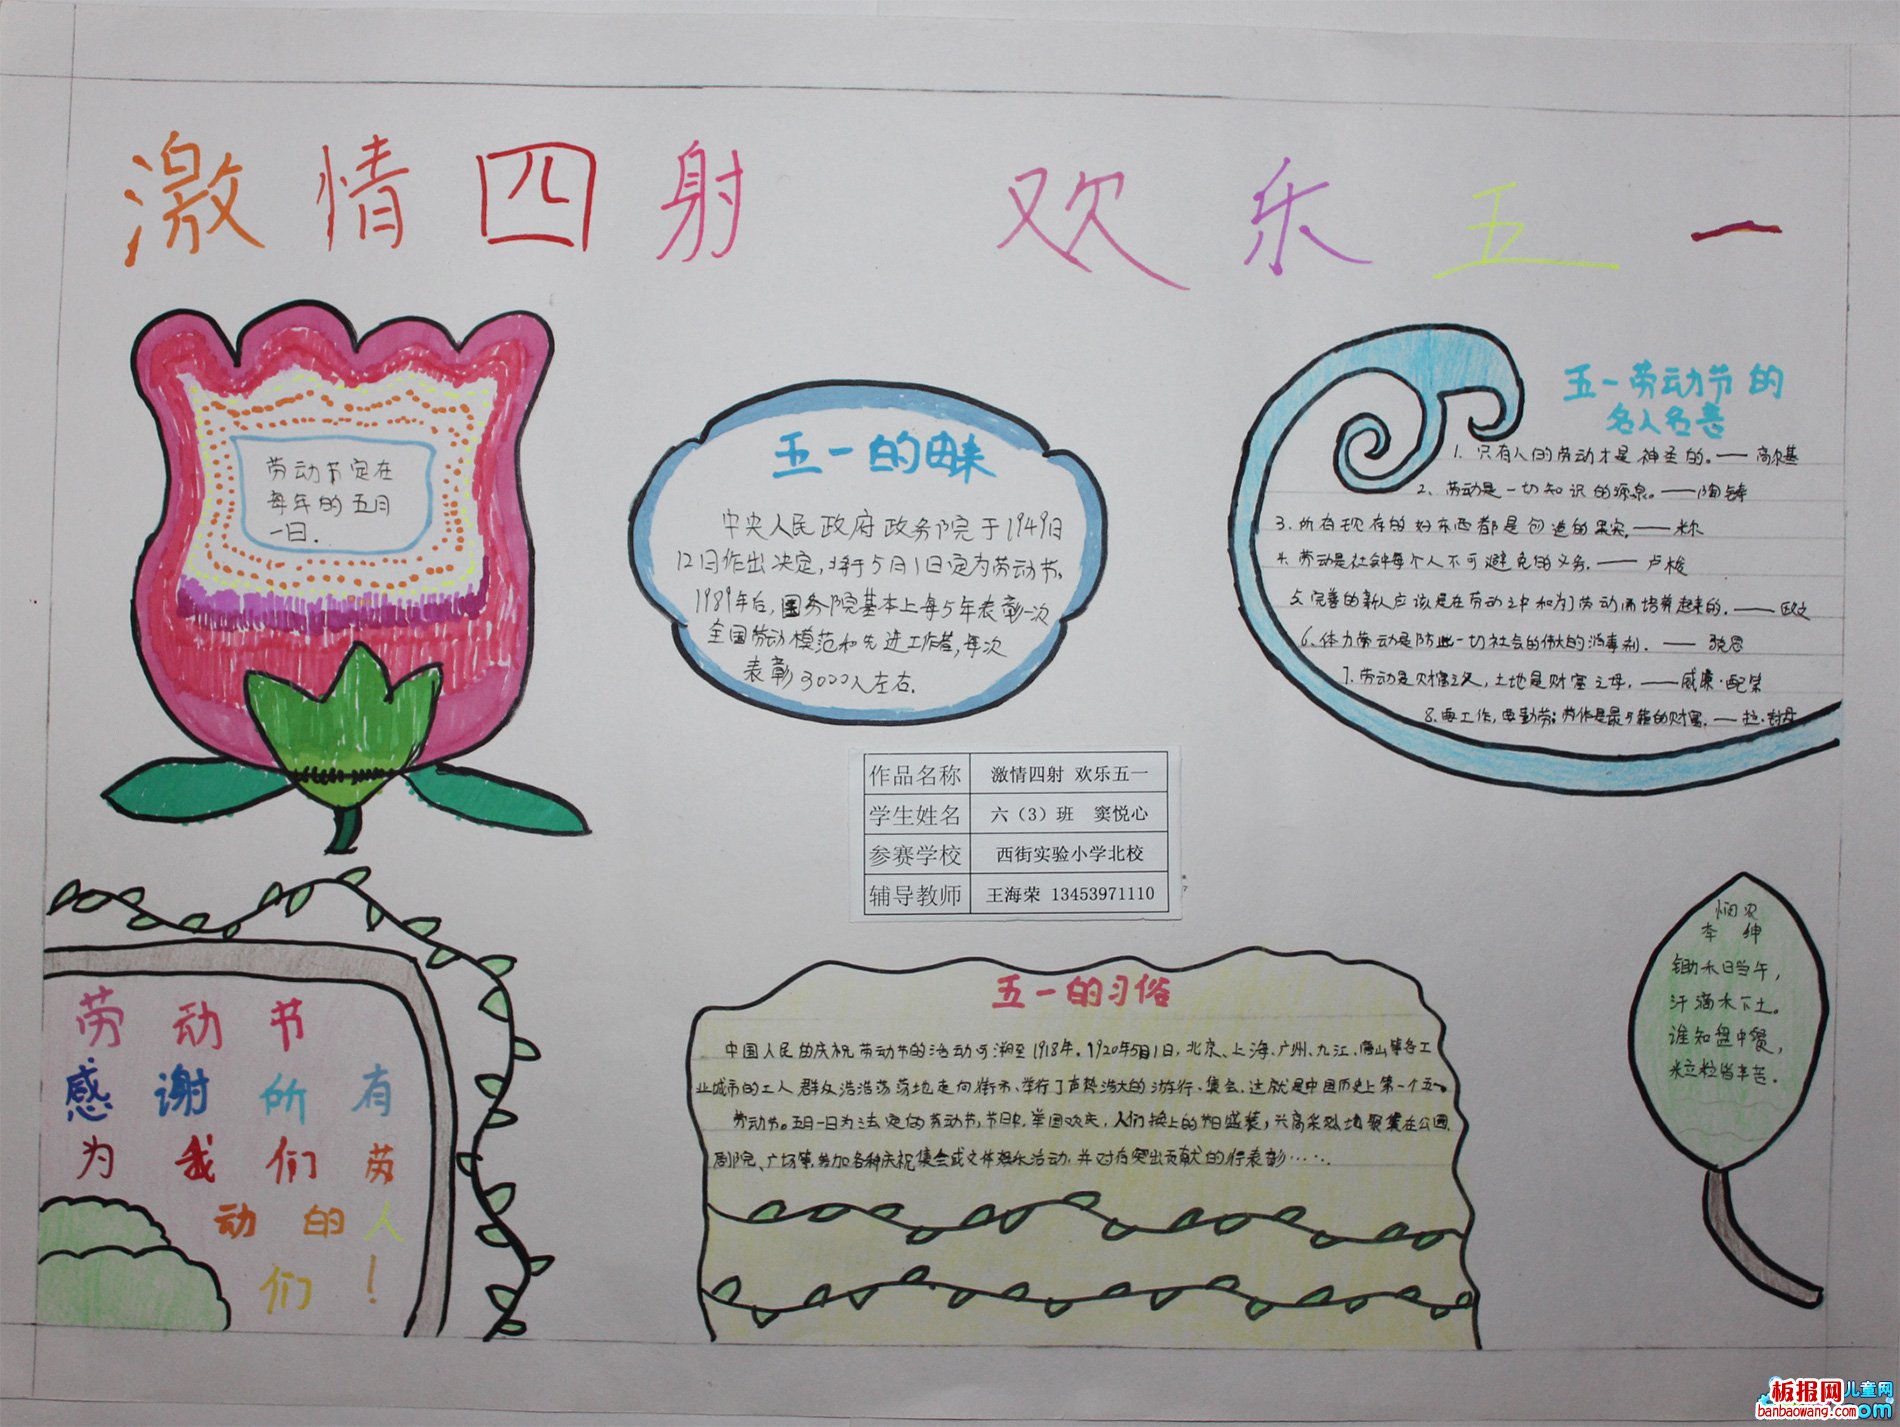 激情四射 欢乐五一
劳动节定在
每年的五月
一日.
五一的由来
中央人民政府政务院于1949日
12月作出决定,将于5月1日定为劳动节。
1989年后,国务院基本上每5年表彰一次
全国劳动模范和先进工作者,每次
表彰3000人左右.
五一劳动节的
名人名言
1. 只有人的劳动才是神圣的。——高尔基
2、劳动是一切知识的源泉。——陶铸
3.所有现存的好东西都是创造的果实.——米尔
4.劳动是社会中每个人不可避免的义务.——卢梭
5.完善的新人应该是在劳动之中和为了劳动而培养起来的.——欧文
6.体力劳动是防止一切社会的伟大的消毒剂.——
7.劳动是财富之父,土地是财富之母.——威廉·配第
8.要工作,要勤劳:劳作是最可靠的财富.——拉·封丹
作品名称 激情四射 欢乐五一
学生姓名 六（3）班 窦悦心
参赛学校 西街实验小学北校
辅导教师 王海荣 13453971110
劳动节
感谢所有
为我们劳
动的人
们!
五一的习俗
中国人民的庆祝劳动节的活动可溯至1918年。1920年5月1日,北京、上海、广州、九江、唐山等各工
业城市的工人群众浩浩荡荡地走向街市、举行了声势浩大的游行、集会.这就是中国历史上第一个五一
劳动节。五月一日为法定的劳动节,节日中,举国欢庆,人们换上的节日盛装,兴高采烈地聚集在公园、
剧院、广场等,参加各种庆祝集会或文体娱乐活动,并对有突出贡献的行表彰……
悯农
李绅
锄禾日当午,
汗滴禾下土。
谁知盘中餐,
粒粒皆辛苦.
板报网儿童网
banbaowang.com